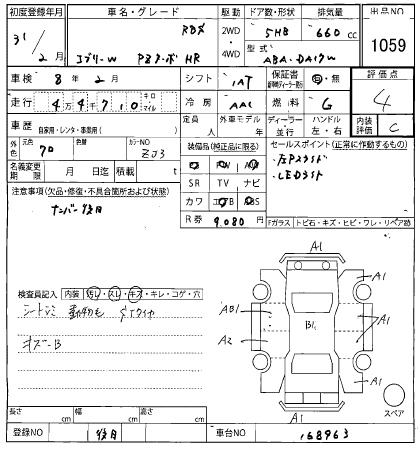 初度登録年月 車名・グレード 駆動 ドア数・形状 排気量 出品NO
31/2月 エブリーW PZターボ HR 2WD 4WD 5HB 660cc 1059
型式 ABA-DA17W
車検 8年2月 シフト 1AT 保証書 有・無 評価点
走行 44710 キロ マイル 冷房 AAC 燃料 G 4
車歴 自家用・レンタ・事業用( ) 定員 人 外車モデル 年 ディーラー 並行 ハンドル 左・右 内装評価 C
外色 元色 色替 カラーNO ZJ3
装備品(純正品に限る) セールスポイント(正常に作動するもの)
・LEDライト
名義変更期限 月 日迄 積載 t
SR TV ナビ
注意事項(欠品・修復・不具合箇所および状態) カワ エアB ABS
ナンバー後日 R券 9,080円
Fガラス トビ石・キズ・ヒビ・ワレ・リペア跡
A1
検査員記入 内装 汚レ・スレ・キズ・キレ・コゲ・穴
A1
AB1 B1 A1
A2
A1
A1
スペア
長さ cm 幅 cm 高さ cm
登録NO 後日 車台NO 168963